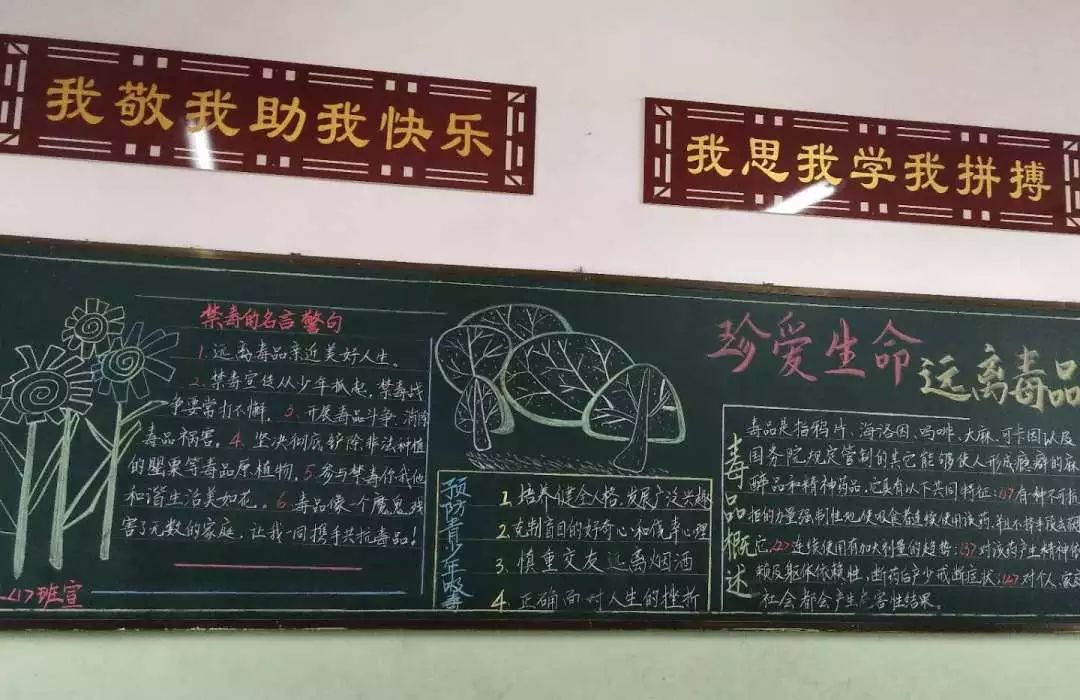 我敬我助我快乐
我思我学我拼搏
禁毒的名言警句
1.远离毒品亲近美好人生。
2.禁毒宣传从少年抓起,禁毒战
争要常打不懈。3.开展毒品斗争,消除
毒品祸害。4.坚决彻底铲除非法种植
的罂粟等毒品原植物,5.参与禁毒你我他
和谐生活美如花。6.毒品像一个魔鬼残
害了无数的家庭,让我们一同携手共抗毒品!
班宣
预防青少年吸毒
1.培养健全人格,发展广泛兴趣
2.克制盲目的好奇心和侥幸心理
3.慎重交友远离烟酒
4.正确面对人生的挫折
珍爱生命
远离毒品
毒品概述
毒品是指鸦片、海洛因、吗啡、大麻、可卡因以及
国务院规定管制的其它能够使人形成瘾癖的麻
醉品和精神药品,它具有以下共同特征:(1)有种不可抗
拒的力量强制性地使吸食者连续使用该药,并且不择手段去获
它,(2)连续使用有加大剂量的趋势;(3)对该药产生精神依
赖及躯体依赖性,断药后产生戒断症状;(4)对个人、家庭
社会都会产生危害性结果。